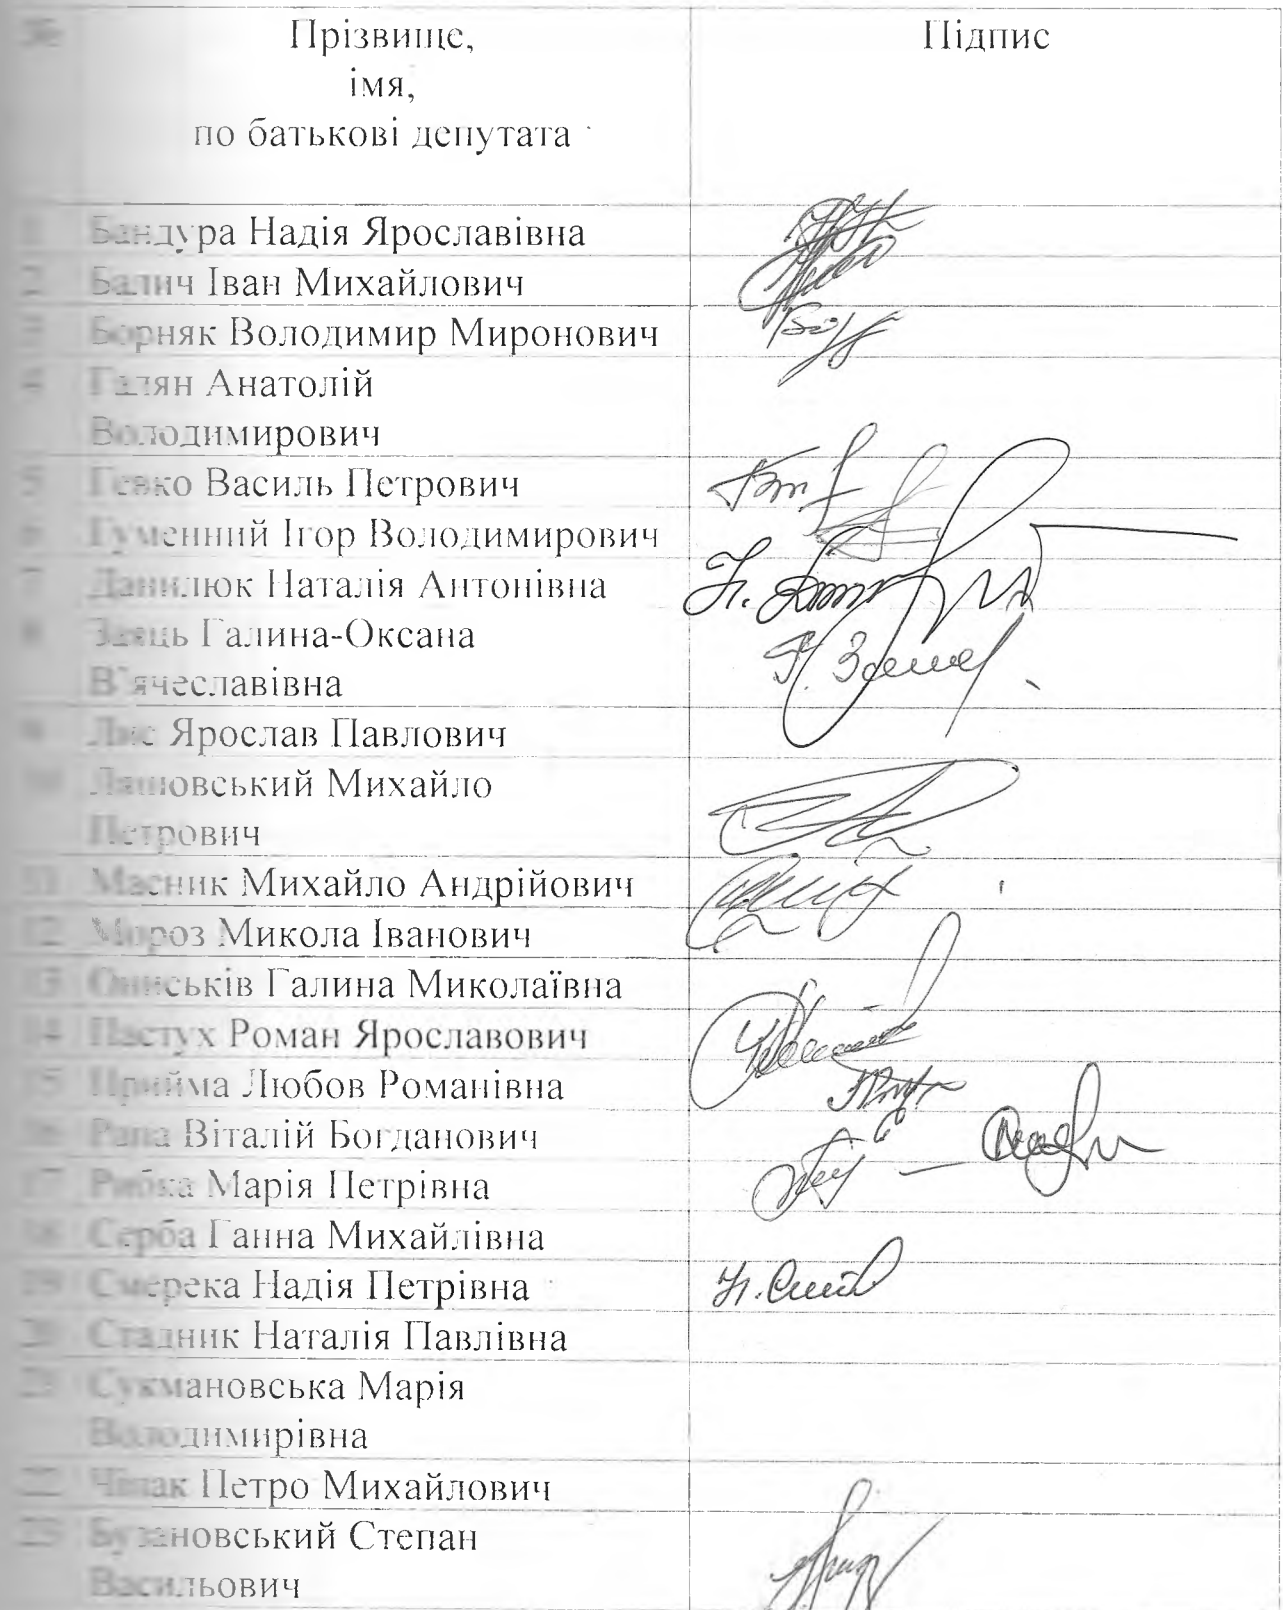 № Прізвище, Підпис
імя,
по батькові депутата
1 Бандура Надія Ярославівна
2 Балич Іван Михайлович
3 Борняк Володимир Миронович
4 Галян Анатолій
Володимирович
5 Гевко Василь Петрович
6 Гуменний Ігор Володимирович
7 Данилюк Наталія Антонівна
8 Заяць Галина-Оксана
В`ячеславівна
9 Лис Ярослав Павлович
10 Михайло
Петрович
11 Масник Михайло Андрійович
12 Мороз Микола Іванович
13 Ониськів Галина Миколаївна
14 Пастух Роман Ярославович
15 Прийма Любов Романівна
16 Рапа Віталій Богданович
17 Рибка Марія Петрівна
18 Серба Ганна Михайлівна
19 Смерека Надія Петрівна
20 Стадник Наталія Павлівна
21 Сукмановська Марія
Володимирівна
22 Чіпак Петро Михайлович
23 Степан
Васильович